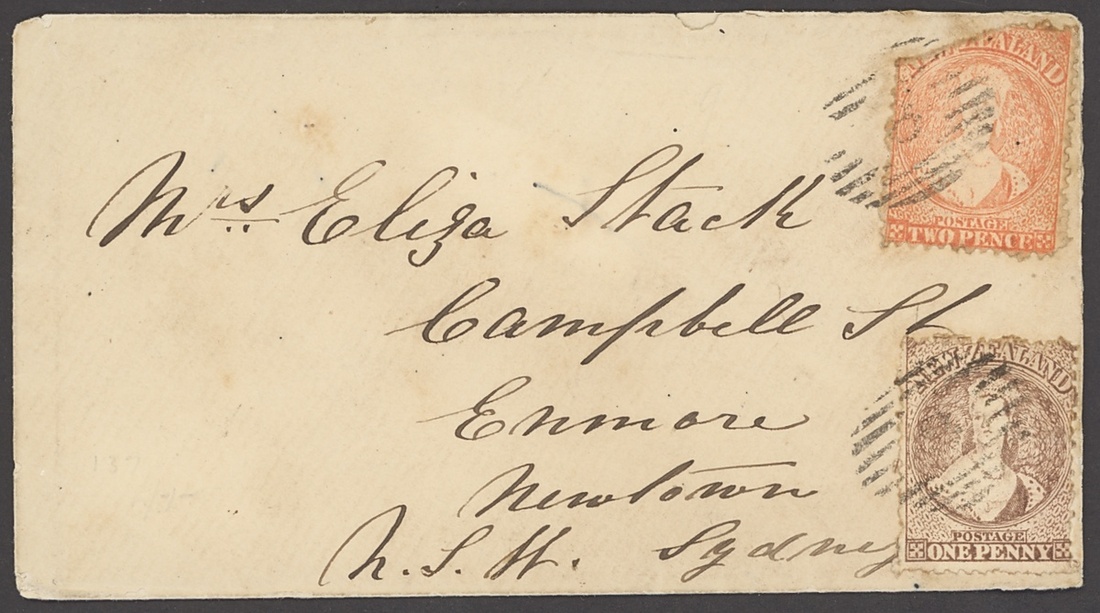 NEW ZEALAND
POSTAGE
TWO PENCE
Mrs. Eliza Stack
Campbell St
Enmore
Newtown
N. S. W. Sydney
NEW ZEALAND
POSTAGE
ONE PENNY
137